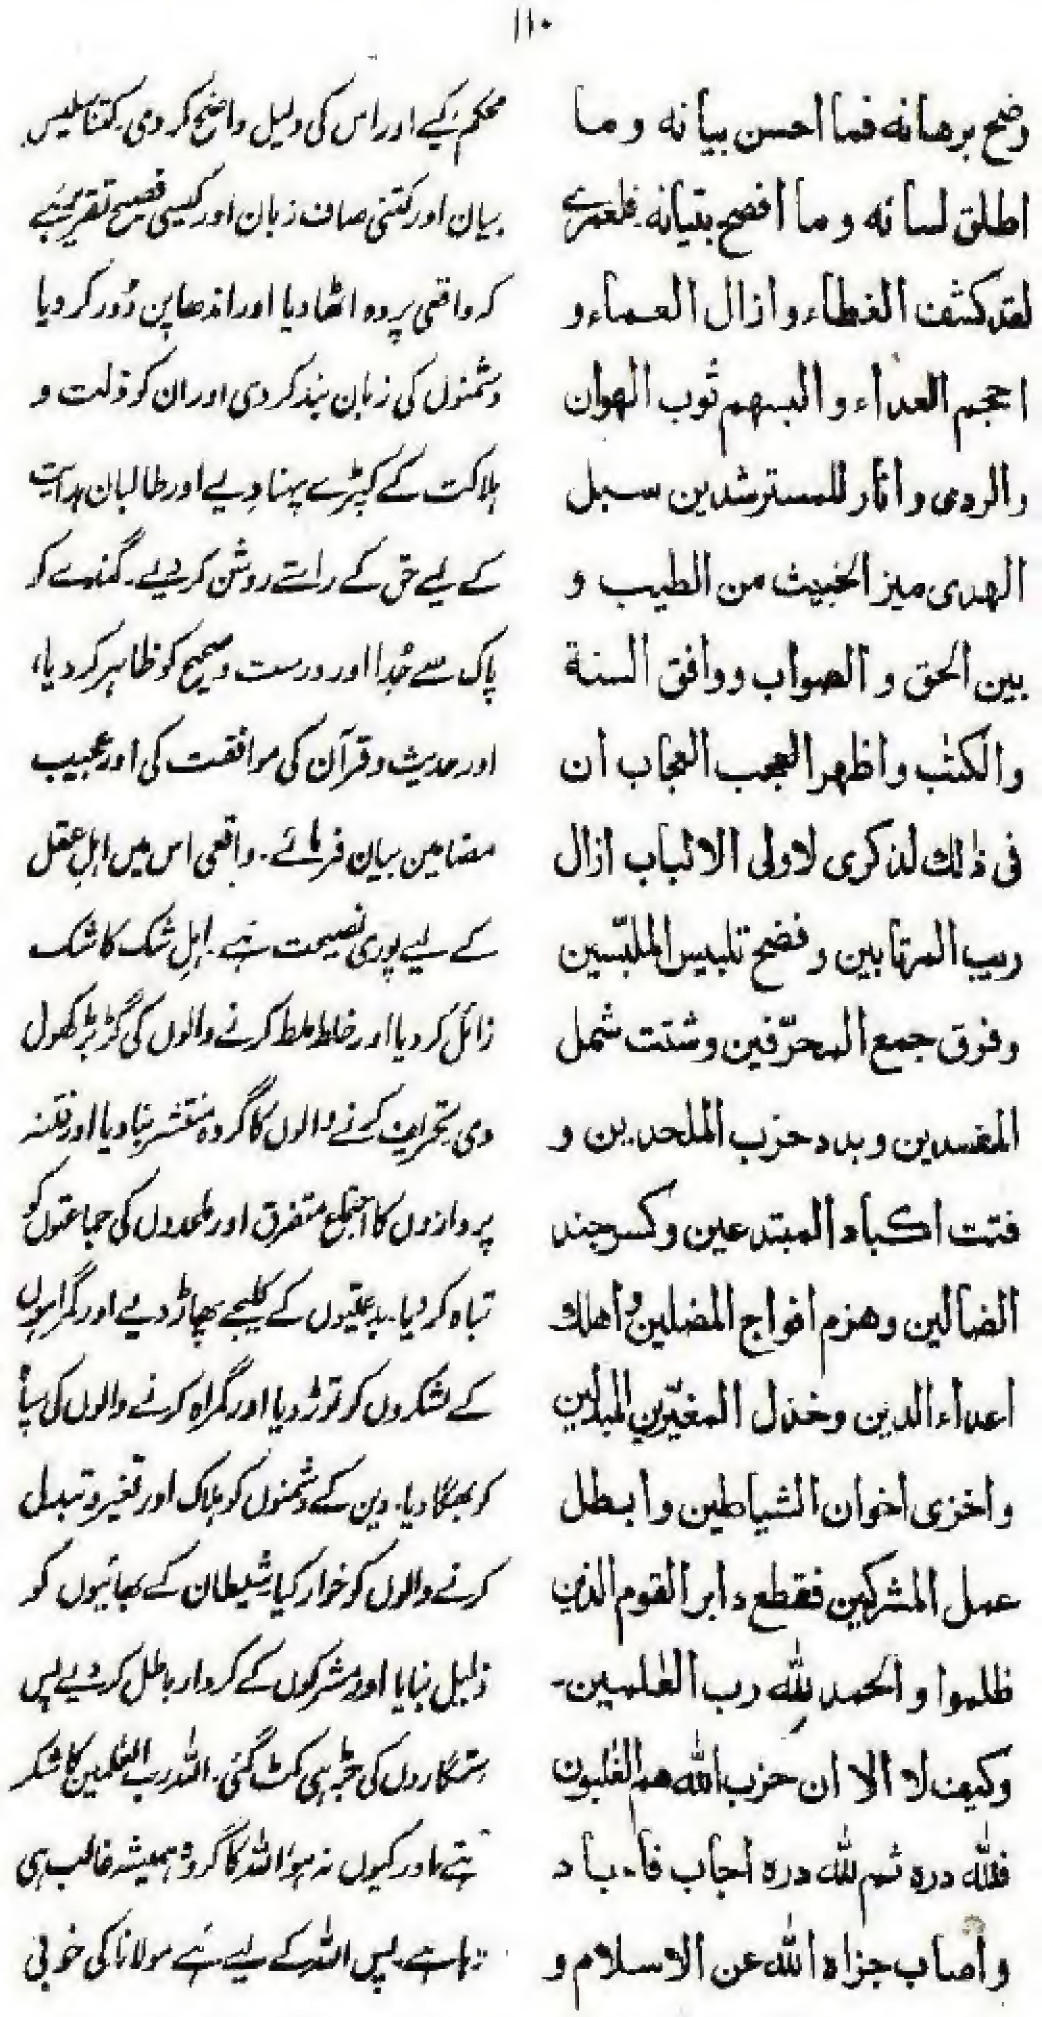 ۱۱۰
وضح برهانه فما احسن بيانه وما
اطلق لسانه وما افصح بتيانه فلعمری
لقد كشف الغطاء و ازال العماء و
احجم العداء و البسهم ثوب الهوان
والردی و انار للمسترشدين سبل
الهدى ميز الخبيث من الطيب و
بين الحق و الصواب ووافق السنة
والكتٰب و اظهر العجب العجاب ان
فی ذالك لذكری لاولی الالباب ازال
ريب المرتابين و فضح تلبيس الملبّسين
وفرق جمع المحرّفين و شتت شمل
المفسدين و بدد حزب الملحدين و
فتت اكباد المبتدعين و كسر جند
الضالين و هزم افواج المضلين و اهلك
اعداء الدين و خذل المغيّرين المبدلين
و اخزی اخوان الشياطين و ابطل
عمل المشركين فقطع دابر القوم الذين
ظلموا و الحمد لله رب العٰلمين۔
وكيف لا الا ان حزب الله هم الغٰلبون
فلله دره ثم لله دره اجاب فاجاد
واصاب جزاه الله عن الاسلام و
محکم کیے اور اس کی دلیل واضح کر دی۔ کتنا سلیس
بیان اور کتنی صاف زبان اور کیسی فصیح تقریر ہے
کہ واقعی پردہ اٹھا دیا اور اندھا پن دُور کر دیا
دشمنوں کی زبان بند کر دی اور ان کو ذلت و
ہلاکت کے کپڑے پہنا دیے اور طالبان ہدایت
کے لیے حق کے راستے روشن کر دیے۔ گندے کو
پاک سے جُدا اور درست و صحیح کو ظاہر کر دیا،
اور حدیث و قرآن کی موافقت کی اور عجیب
مضامین بیان فرمائے۔ واقعی اس میں اہلِ عقل
کے لیے پوری نصیحت ہے۔ اہلِ شک کا شک
زائل کر دیا اور خلط ملط کرنے والوں کی گڑبڑ کھول
دی۔ تحریف کرنے والوں کا گروہ منتشر بنا دیا اور فتنہ
پروازوں کا اجتماع متفرق اور ملحدوں کی جماعتوں کو
تباہ کر دیا۔ بدعتیوں کے کلیجے پھاڑ دیے اور گمراہوں
کے لشکروں کو توڑ دیا اور گمراہ کرنے والوں کی سپاہ
کو بھگا دیا۔ دین کے دشمنوں کو ہلاک اور تغیر و تبدل
کرنے والوں کو خوار کیا، شیطان کے بھائیوں کو
ذلیل بنایا اور مشرکوں کے کردار باطل کر دیے پس
ستمگاروں کی جڑ ہی کٹ گئی۔ اللہ رب العٰلمین کا شکر
ہے اور کیوں نہ ہو اللہ کا گروہ ہمیشہ غالب ہی
رہا ہے۔ پس اللہ کے لیے ہے مولانا کی خوبی